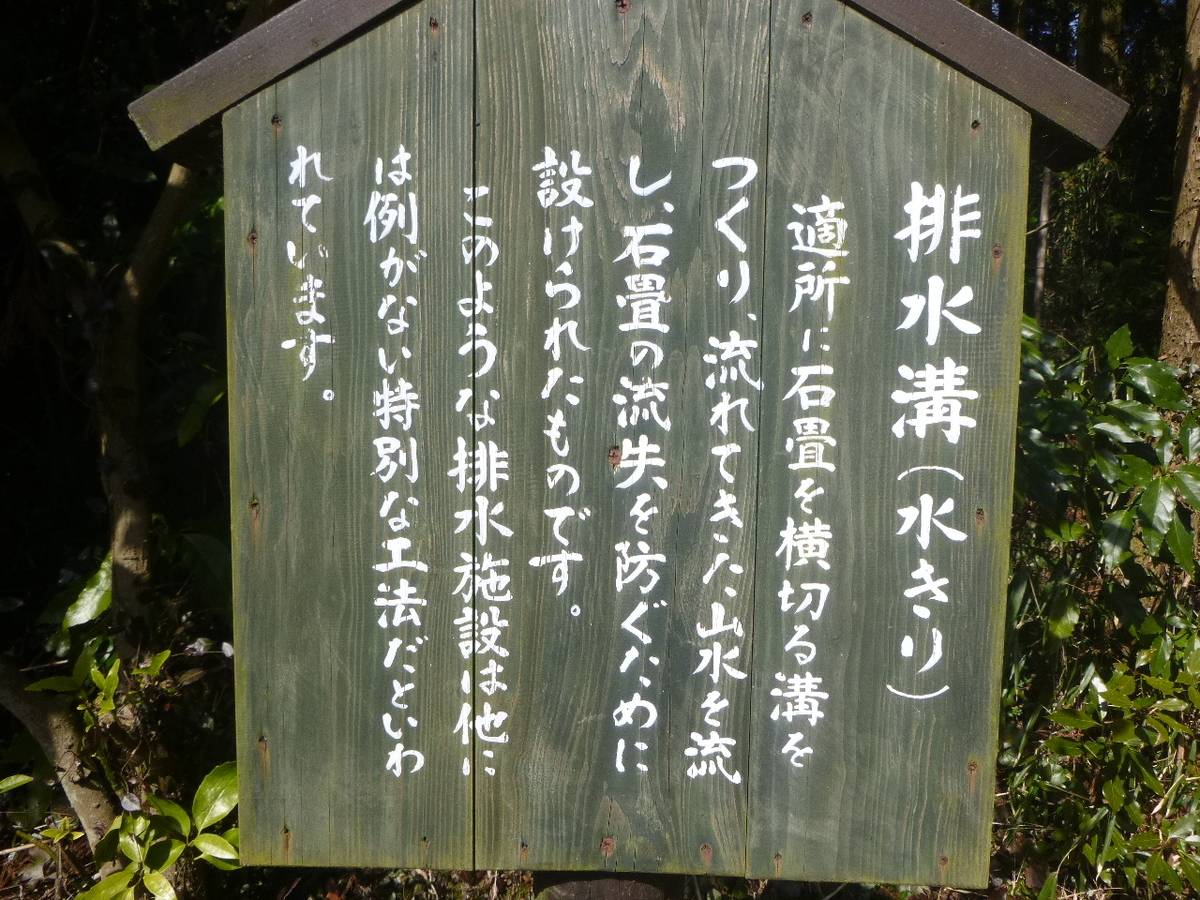 排水溝(水きり)
適所に石畳を横切る溝を
つくり、流れてきた山水を流
し、石畳の流失を防ぐために
設けられたものです。
このような排水施設は他に
は例がない特別な工法だといわ
れています。